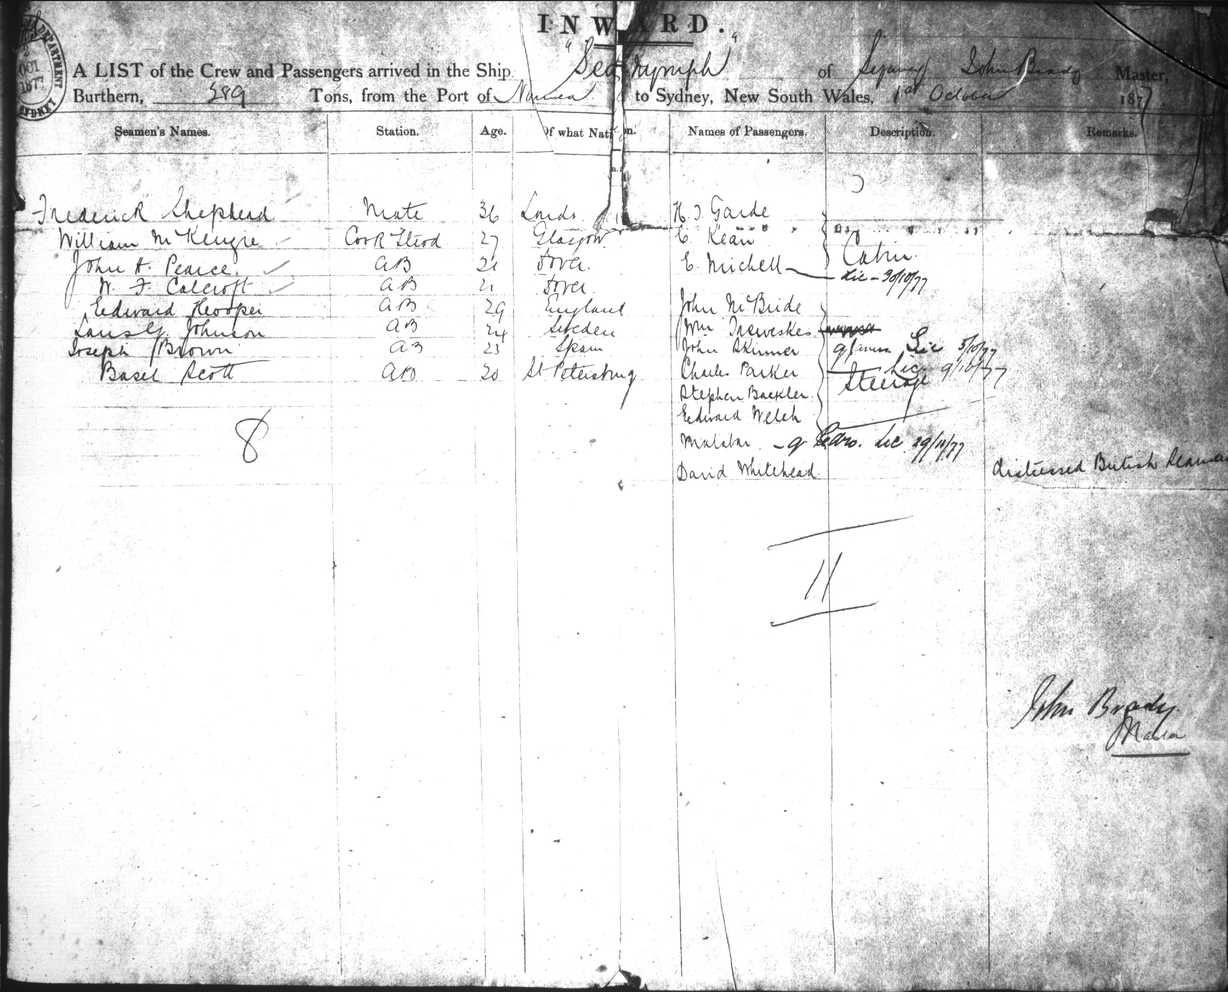 INWARD.
A LIST of the Crew and Passengers arrived in the Ship "Sea Nymph" of Sydney John Brady Master,
Burthern, 289 Tons, from the Port of Noumea to Sydney, New South Wales, 1st October 1877
Seamen's Names. Station. Age. Of what Nation. Names of Passengers. Description. Remarks.
Frederick Shephead Mate 36 H. J Garde
William McKenzie Cook & Stod 27 Glasgow C Kean Cabin
John H. Pearce AB 21 Dover E. Michell Lic - 30/10/77
W. F Calcroft AB 21 Dover
Edward Hooper AB 29 England John McBride
Johnson AB 24 Sweden John
Joseph Brown AB 23 Spain John Skinner Lic 5/10/77
Basel Scott AB 20 St Petersburg Charles Parker Lic 9/10/77
Stephen Backler Steerage
Edward Welch
8
Malabar Lic 29/11/77
David Whitehead distressed British Seaman
11
John Brady
Master